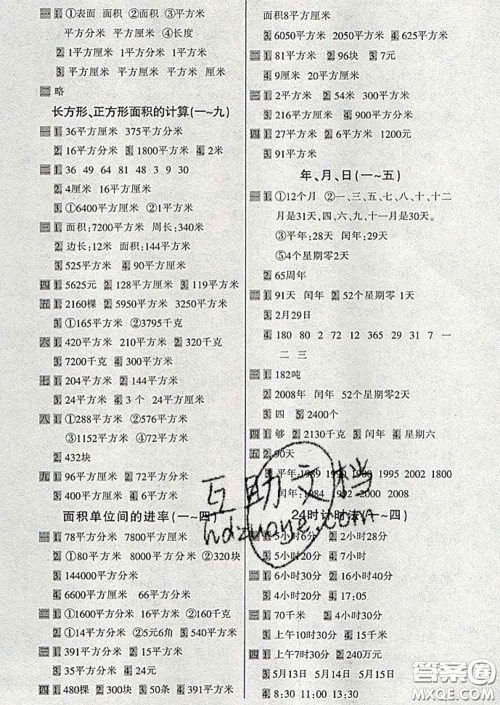 一1.①表面 面积 面积 ③平方米
平方分米 平方厘米 ④长度
2.1平方厘米 1平方分米 1平方米
3.平方厘米 平方厘米 平方米
二 略
长方形、正方形面积的计算(一~九)
一1.36平方厘米 375平方分米
2.16平方分米 3.1800平方厘米 4.2米
二1.36 49 64 81 48 3 9 30
2.4厘米 16平方厘米
3.①6400平方厘米 ②1平方米
三1.面积:7200平方米 周长:340米
2.边长:12米 面积:144平方米
3.525平方米 4.90平方厘米
四1.5625元 2.128平方厘米 3.119平方米
五1.2160棵 2.5950平方米 3.3250平方米
4.①165平方米 ②3795千克
六1.420平方米 210平方米 2.32平方分米
3.7200千克 4.300平方米
七1.204平方米 2.144平方分米
3.24平方米 4.3个 24平方厘米
八1.①288平方米 ②576平方米
③1152平方米 ④72平方米
2.432块
九1.96平方厘米 2.72平方米
3.600平方米 4.36平方厘米
面积单位间的进率(一~四)
一1.78平方分米 7800平方厘米
2.32平方分米 3200平方厘米 320块
3.144000平方分米
4.6600平方厘米 66平方分米
二1.①1600平方米 16平方分米 2.1600克
2.①14平方米 ②5元6角 3.540平方米
三1.391平方分米 2.30平方米
3.35平方分米 4.24元
四1.480棵 2.300块 3.50条 4.391平方米
面积8平方厘米
3.6050平方米 2050平方米 4.625平方米
二1.81平方米 2.96块 3.7元
4.9厘米 20平方厘米
三1.2平方米 2.54米 300平方米
四1.27平方米 2.6平方米 1200元
3.91平方米
年、月、日(一~五)
一1.①12个月 ②一、三、五、七、八、十、十二
月是31天,四、六、九、十一月是30天。
③平年:28天 闰年:29天
⑤4个星期零2天
2.65周年
二1.91天 闰年 2.52个星期零1天
3.2月29日
4.180 80 2 72 12 365 29 31 7 一
二 三
三1.182吨
2.2008年 闰年 52个星期零2天
3.四 5.2400个
四1.够 2.2130千克 3.闰年 4.星期六
五2.90天
3.平年:1989 1990 1995 2002 1800
闰年:1984 1992 2000 1960
24时计时法(一~四)
一1.5小时6分 2.2小时28分
3.5小时20分 4.7小时
二1.6小时30分
3.4小时20分
三1.70千米 2.4小时30分
3.上午10时30分 4.350米
四1.上午7时30分 2.240万元
3.5月13日 5月14日 5月15日
4.8:30 11:00 13:30
互助文档
hdzuoye.com
答案圈
MXQE.COM